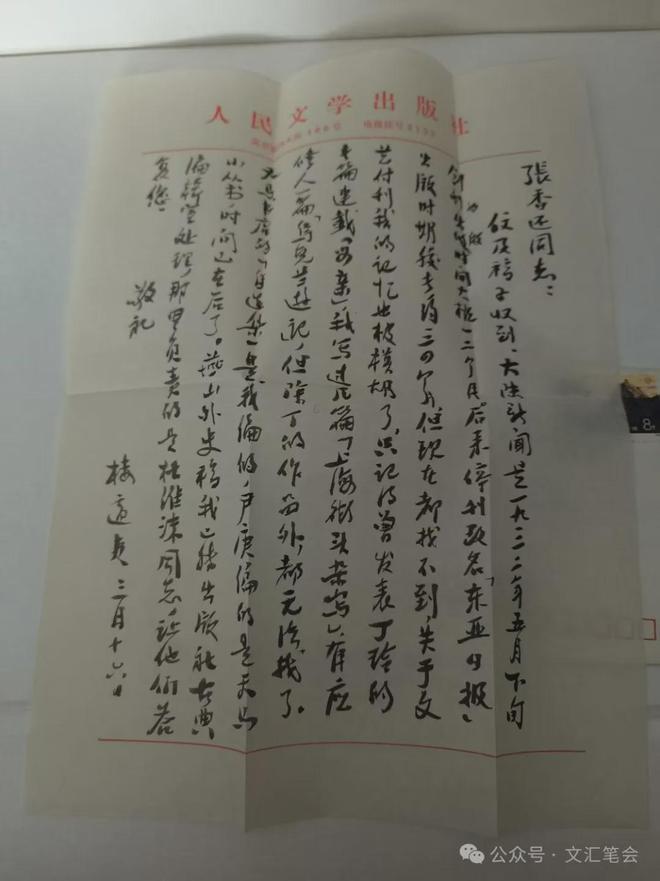 人民文学出版社
166号 电报挂号2192
張香还同志:
信及稿子收到,大陆新闻是一九三二年五月下旬
创刊,出版时间大概一二个月,后来停刊改名「东亚日报」
出版时期较长有三四个月,但现在都找不到,关于文
艺付刊我的记忆也极模胡了,只记得曾发表丁玲的
长篇连载「母亲」,我写过几篇「上海街头杂写」,有应
修人一篇「游记」,但除丁的作品外,都无法找了。
天马书店的「自选集」是我编的,尹庚编的是天马
小丛书,时间上在后了。燕山外史稿我已转出版社古典
编辑室处理,那里负责的是杜维沫同志,让他们答
复您。
敬礼
楼适夷 三月十六日
8
公众号·文汇笔会